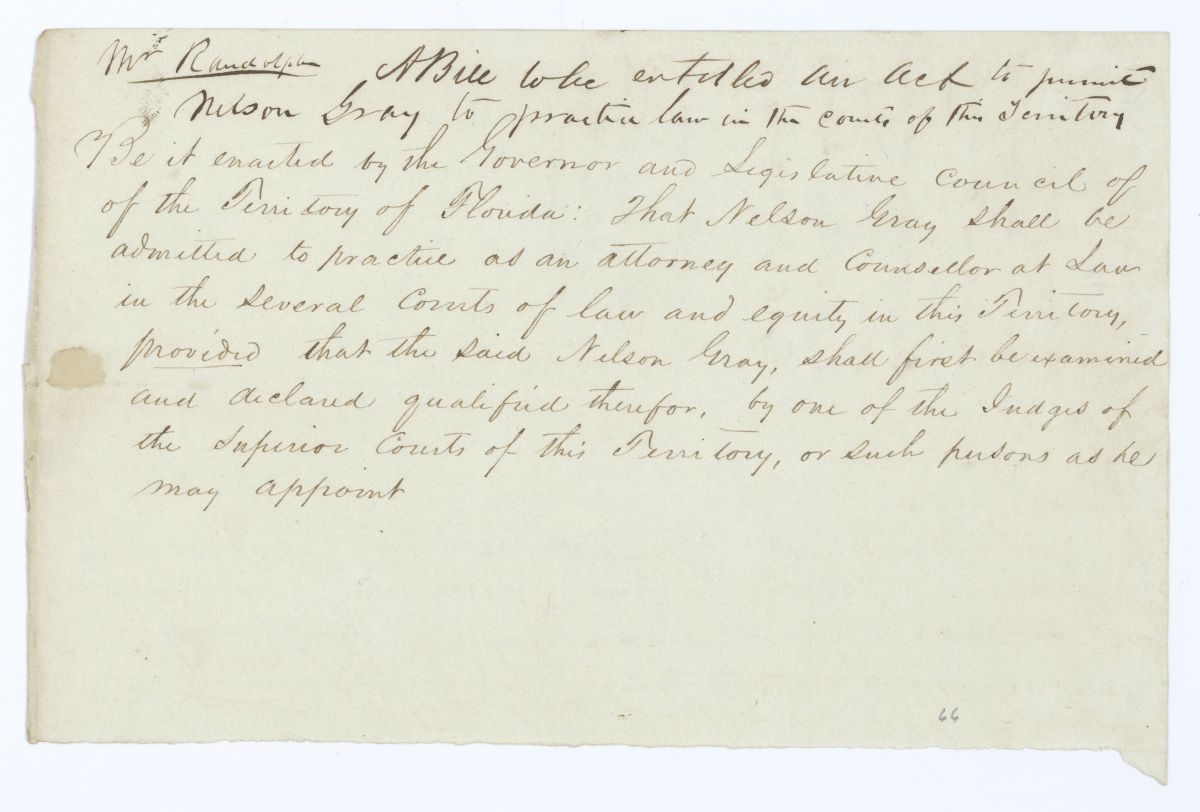 Mr Randolph A Bill to be entitled An Act to permit
Nelson Gray to practice law in the courts of this Territory
Be it enacted by the Governor and Legislative Council of
of the Territory of Florida: That Nelson Gray shall be
admitted to practice as an attorney and Counsellor at Law
in the several Courts of law and equity in this Territory,
provided that the said Nelson Gray, shall first be examined
and declared qualifid therefor, by one of the Judges of
the Superior Courts of this Territory, or such persons as he
may appoint
66